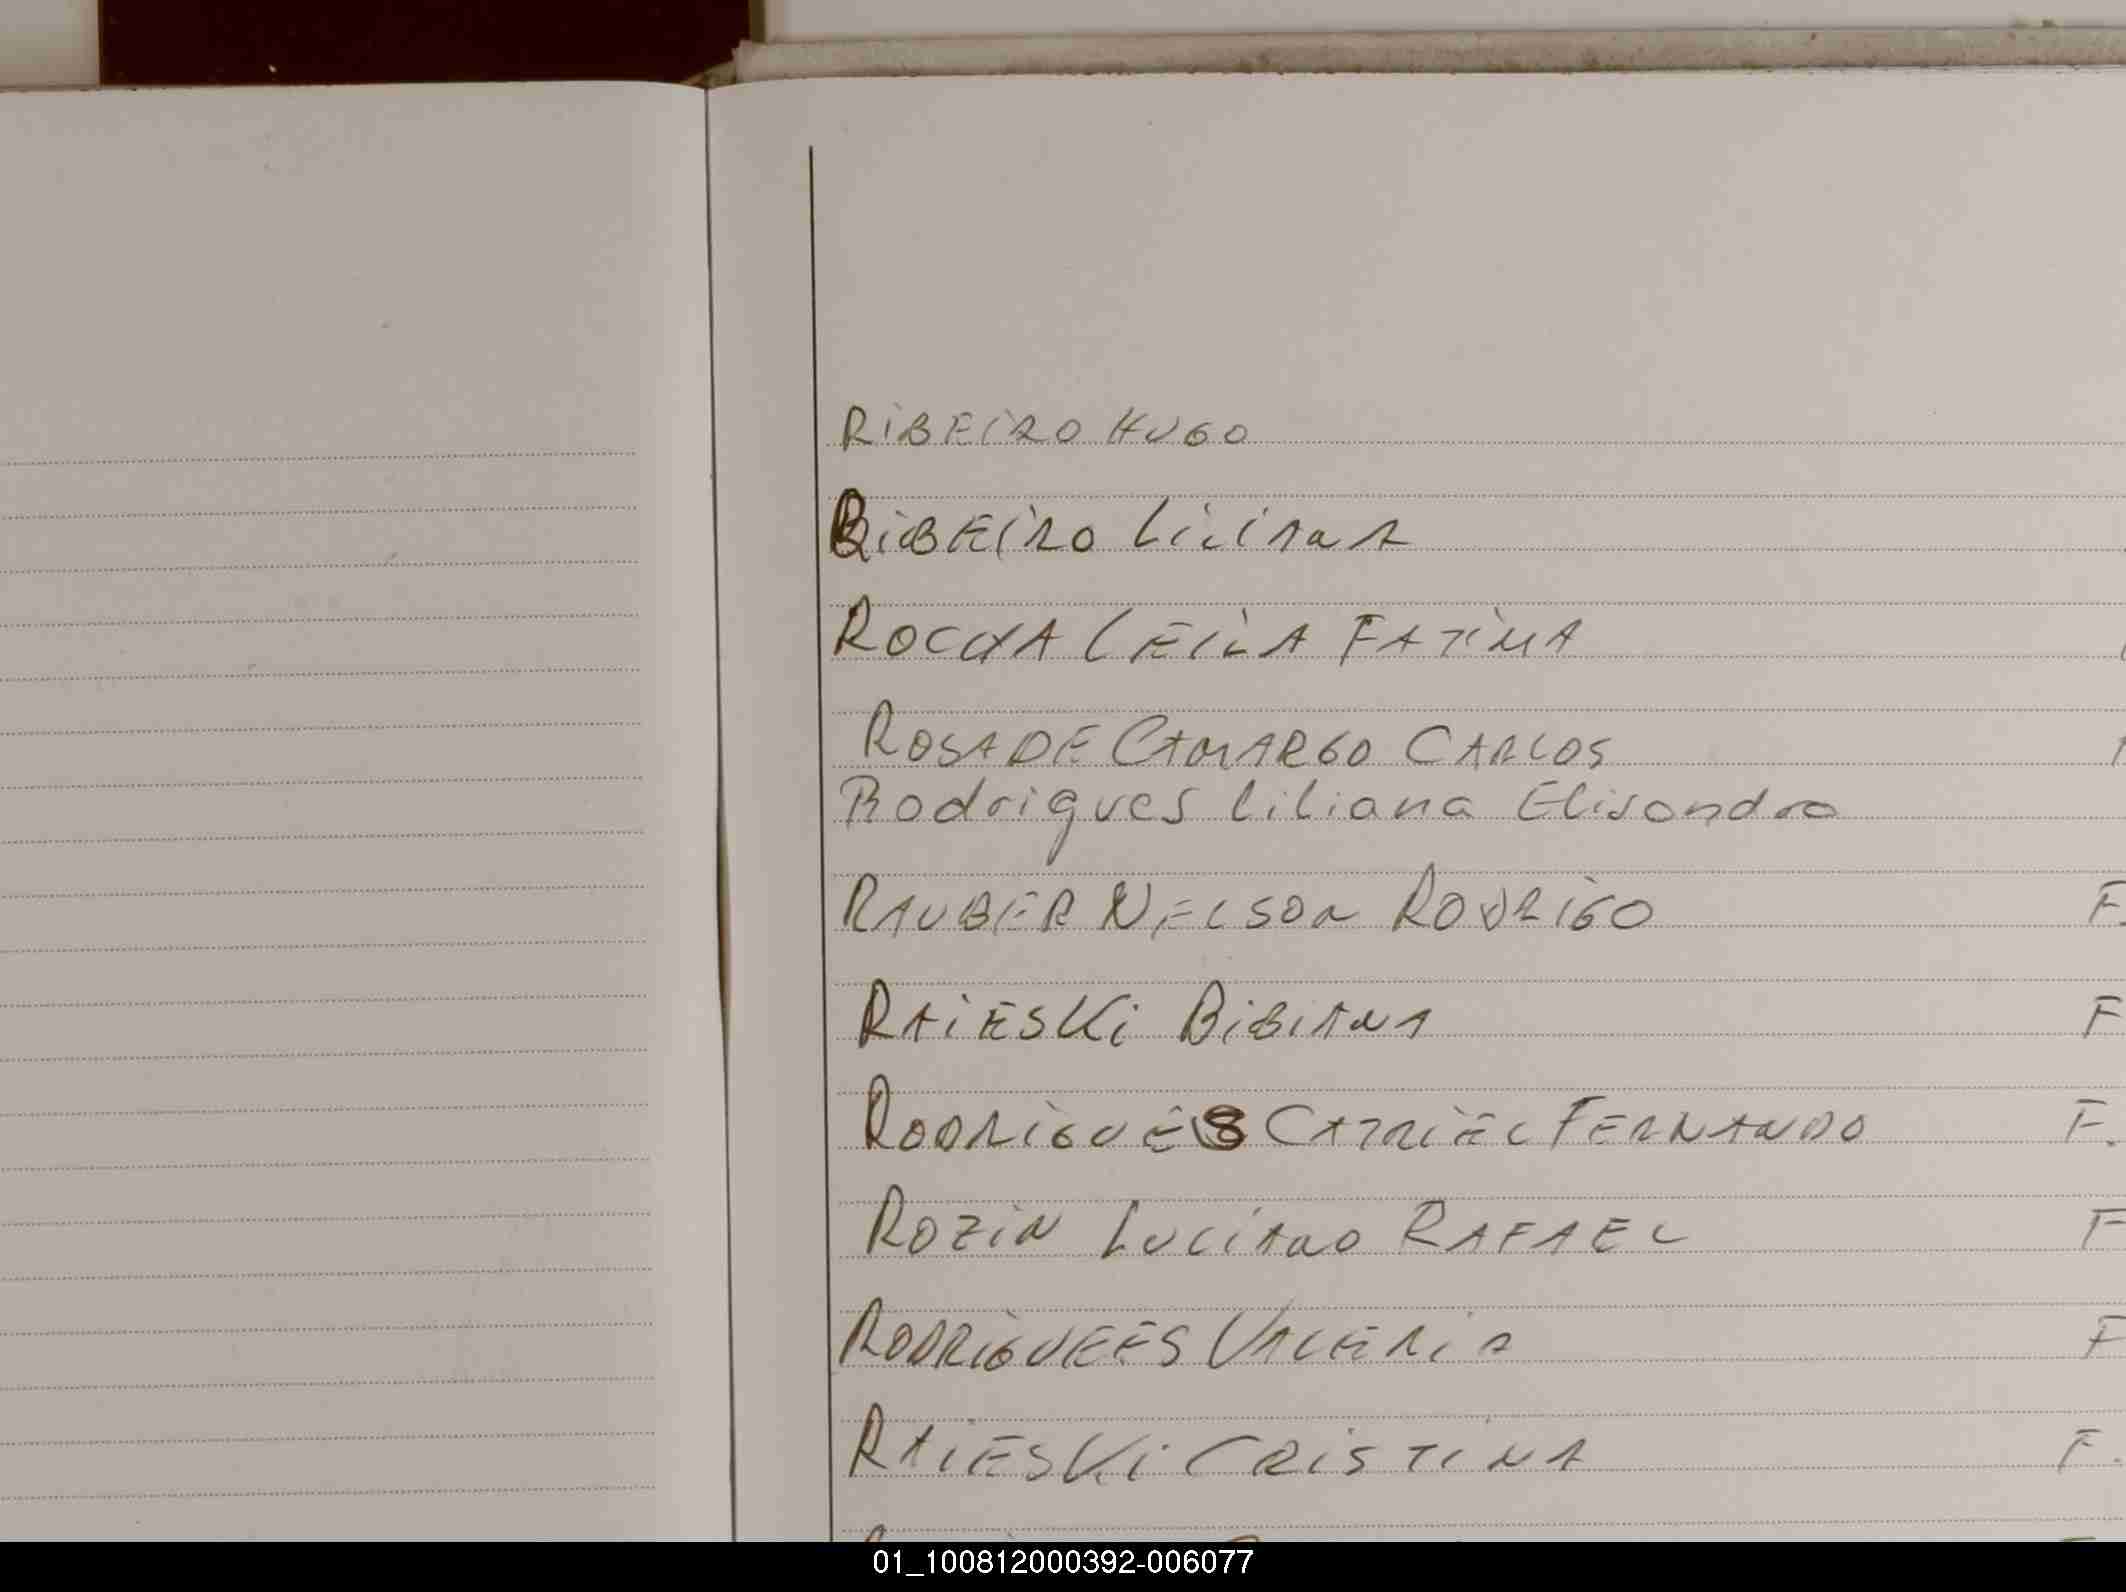 RIBEIRO HUGO
RIBEIRO LILIANA
ROCHA LEILA FATIMA
ROSA DE CAMARGO CARLOS
Rodrigues Liliana Elisandra
RAUBER NELSON RODRIGO F.
RAIESKI BIBIANA F
RODRIGUES CATRIEL FERNANDO F.
ROZIN LUCIANO RAFAEL F
RODRIGUEES VALERIA F
RAIESKI CRISTINA F.
01_100812000392-006077